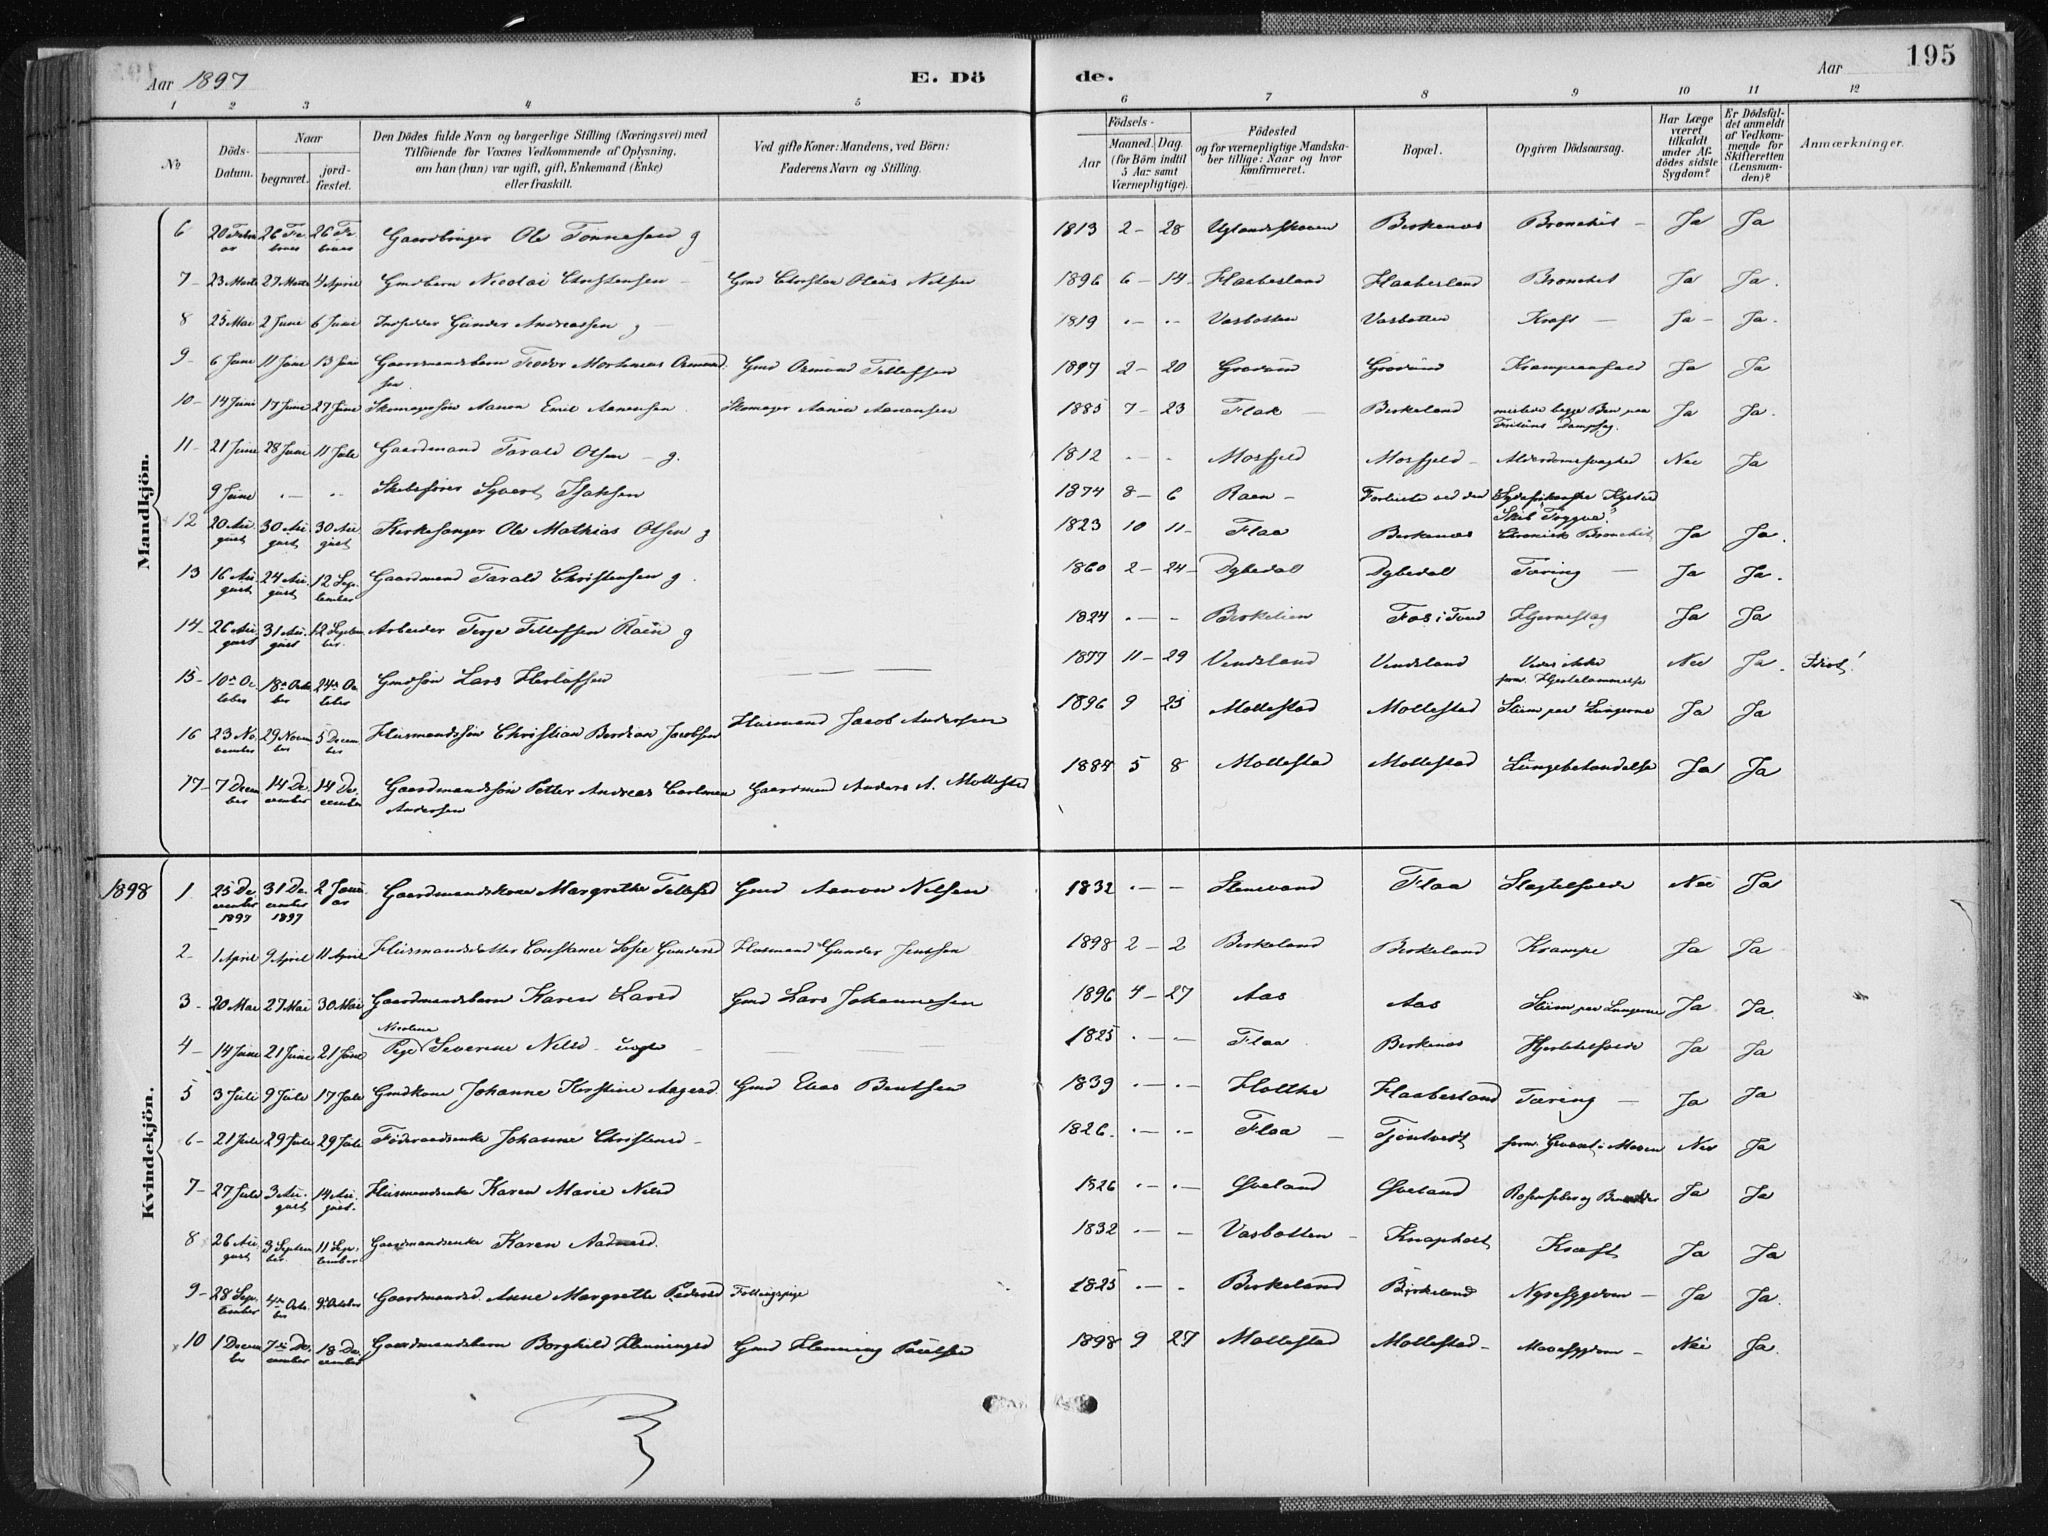 195
Aar 1897 E. Dö de. Aar
1 2 3 4 5 6 7 8 9 10 11 12
No
Döds-Datum.
Naar
begravet.
jord-fæstet.
Den Dödes fulde Navn og borgerlige Stilling (Næringsvei) med
Tilföiende for Voxnes Vedkommende af Oplysning,
om han (hun) var ugift, gift, Enkemand (Enke)
eller fraskilt.
Ved gifte Koner: Mandens, ved Börn:
Faderens Navn og Stilling.
Födsels-
Aar
Maaned. Dag.
(for Börn indtil
5 Aar samt
Værnepligtige).
Födested
og for værnepligtige Mandska-
ber tillige: Naar og hvor
konfirmeret.
Bopæl.
Opgiven Dödsaarsag.
Har Læge
været
tilkaldt
under Af-
dödes sidste
Sygdom?
Er Dödsfal-
det anmeldt
af Vedkom-
mende for
Skifteretten
(Lensman-
den)?
Anmærkninger.
Mandkjön.
6 20 Februar 26 Februar 26 Februar Ole Tønnesen g 1813 2 – 28 Birkenes Bronchit – Ja Ja
7 – 23 Marts 27 Marts 4 April Gmdbarn Nicolai Christensen – Gmd Christen Olaus Nilsen 1896 6 – 14 – Haabesland Haabesland Bronchit Ja Ja.
8 25 Mai 2 Juni 6 Juni Gunder Andreassen g – 1819 . – . – Vasbotten Vasbotten Kræft – Ja – Ja.
9 – 6 Juni 11 Juni 13 Juni Gaardmandsbarn Teodor Martinius Osmund-
sen. Gmd Osmund Tellefsen 1897 2 – 20 Krampeanfald Ja Ja
10 – 14 Juni 17 Juni 27 Juni Skomagersøn Aanon Emil Aanensen Skomager Aanen Aanensen 1885 7 – 23 Flak – Birkeland mistede begge Ben paa
Dampsag. Ja Ja.
11 – 21 Juni 28 Juni 11 Juli Gaardmand Tarald Olsen – g. 1812 . – . Mosfjeld Mosfjeld – Alderdomssvaghed Nei Ja
9 Juni . – . . Syvert Isaksen 1874 8 – 6 Raen – Forliste ved den Sydafrikanske Kyst
Skib Trygve.
12 20 August 30 August 30 August Kirkesanger Ole Mathias Olsen g 1823 10 11 – Flaa Birkenes Chronisk Bronchit Ja Ja.
13 16 August 24 August 12 September Gaardmand Tarald Christensen g. 1860 2 – 24 – Dybedal Dybedal Tæring – Ja Ja.
14 – 26 August 31 August 12 September. Arbeider Terje Tellefsen Raen g 1824 . – – Birkelien Fos i Tveid Hjerneslag Ja Ja
15 – 10de October 18de October 24de October Gmdsøn Lars Herlofsen – – 1877 11 – 29 Vendsland Vendsland Vides ikke
form. Hjertelammelse Nei Ja. Idiot!
16 23 November 29 November 5 December Husmandssøn Christian Jacobsen Husmand Jacob Andersen 1896 9 25 Mollestad Mollestad Sliim paa Lungerne Ja Ja
17 – 7 December 14 December 14 December Gaardmandssøn Petter Andreas
Andersen Gaardmand Anders A. Mollestad 1884 5 8 Mollestad Mollestad Lungebetændelse Ja Ja
Kvindekjön.
1898 1 25 December 1897 31 December 1897 2 Januar Gaardmandskone Margrethe Tellefsd Gmd Aanon Nilsen 1832 . – – Stenevand Flaa Nei Ja
2 – 1 April 9 April 11 April Husmandsdatter Constance Sofie Gundersd Husmand Gunder Jensen 1898 2 – 2 Birkeland Birkeland Krampe Ja Ja
3 – 20 Mai 27 Mai 30 Mai Gaardmandsbarn Karen Larsd Gmd Lars Johannesen 1896 4 – 27 Aas Aas Sliim paa Lungerne Ja Ja.
4 – 14 Juni 21 Juni 21 Juni Pige Nicoline Severine Nilsd – ugt – 1825 . – – . Flaa Birkenes Ja Ja
5 3 Juli 9 Juli 17 Juli Gmdkone Johanne Kirstine Aagesd Gmd Elias Bentsen 1839 . – . – Holtke Haabesland Tæring – Ja Ja
6 – 21 Juli 29 Juli 29 Juli Føderaadsenke Johanne Christensd – 1826. . – . – Flaa – Tjøntvedt Nei Ja
7 – 27 Juli 3 August 14 August. Husmandsenke Karen Marie Nilsd 1826 . – . – Øveland Øveland Ja Ja
8 26 August 3 September 11 September Gaardmandsenke Karen Aadnesd. 1832 . – – Vasbotten – Knapholt Kræft Ja Ja
9 – 28 September 4de October 9 October Gaardmandsd. Anne Margrethe Pedersd 1825 . – – Birkeland Birkeland Nyresygdom – Ja Ja.
10 1 December 7de December 18 December Gaardmandsbarn Borghild Henningsd Gmd Henning Paulsen 1898 9 27 Mollestad Mollestad – Mavesygdom – Nei Ja.